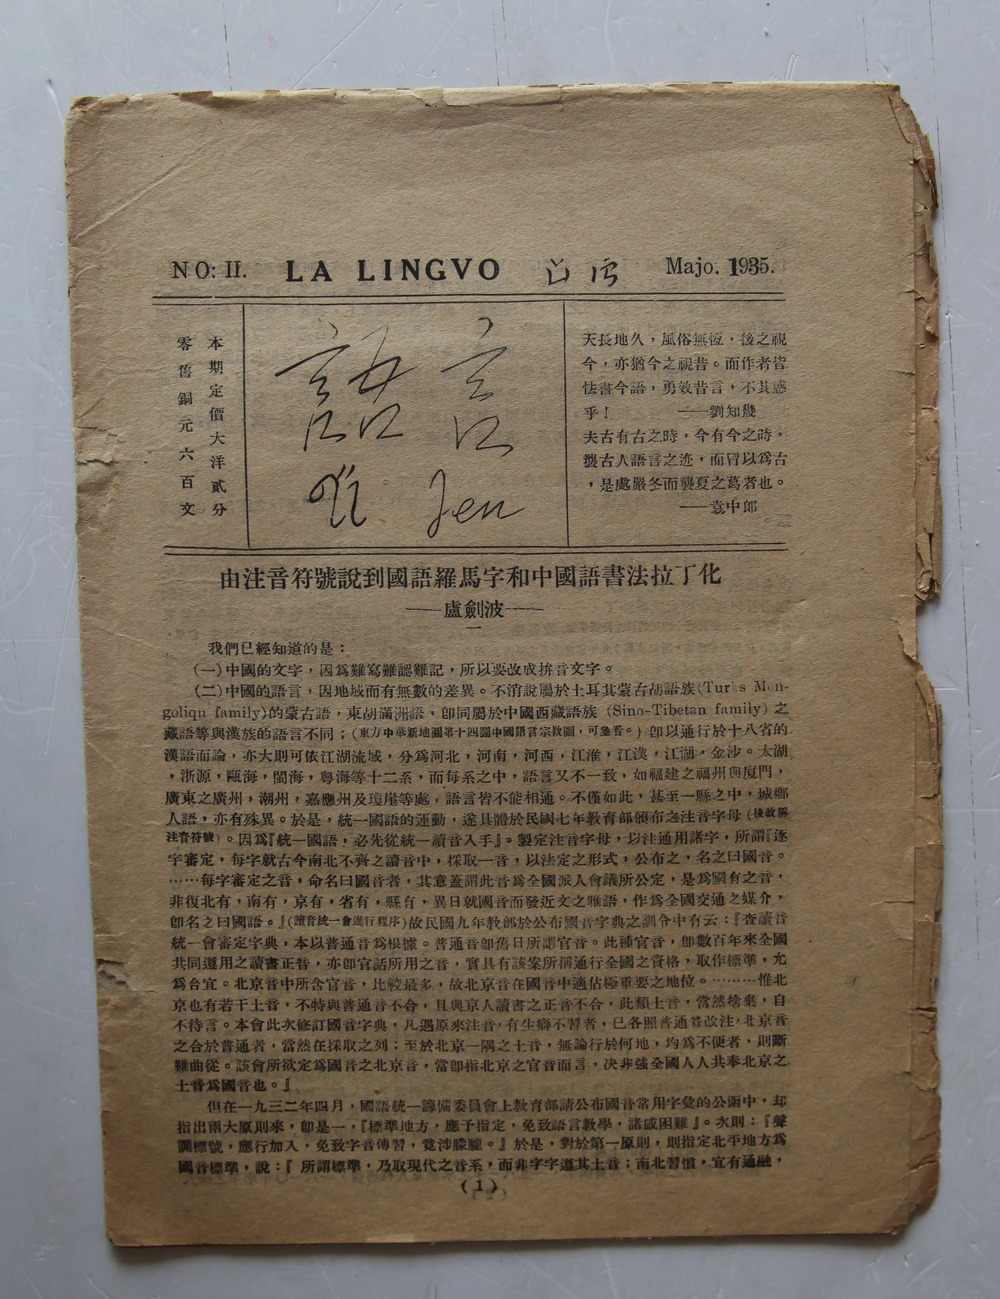 NO: II. LA LINGVO Majo. 1935.
本期定價大洋貳分
零售銅元六百文
語言
Yi Jen
天長地久，風俗無恆，後之視
今，亦猶今之視昔。而作者皆
怯書今語，勇效昔言，不其惑
乎！ ——劉知幾
夫古有古之時，今有今之時，
襲古人語言之迹，而冒以爲古
，是處嚴冬而襲夏之葛者也。
——袁中郎
由注音符號說到國語羅馬字和中國語書法拉丁化
——盧劍波——
一
我們已經知道的是：
（一）中國的文字，因爲難寫難認難記，所以要改成拚音文字。
（二）中國的語言，因地域而有無數的差異。不消說屬於土耳其蒙古胡語族(Turks Mon-
goliqn family)的蒙古語，東胡滿洲語，卽同屬於中國西藏語族 (Sino-Tibetan family) 之
藏語等與漢族的語言不同；（東方中華新地圖第十四圖中國語言宗敎圖，可參看。）卽以通行於十八省的
漢語而論，亦大則可依江湖流域，分爲河北，河南，河西，江淮，江漢，江湖，金沙。太湖
，浙源，甌海，閩海，粵海等十二系，而每系之中，語言又不一致，如福建之福州與廈門，
廣東之廣州，潮州，嘉應州及瓊崖等處，語言皆不能相通。不僅如此，甚至一縣之中，城鄉
人語，亦有殊異。於是，統一國語的運動，遂具體於民國七年教育部頒布之注音字母（後改稱
注音符號）。因爲『統一國語，必先從統一讀音入手』。製定注音字母，以注通用諸字，所謂『逐
字審定，每字就古今南北不齊之讀音中，採取一音，以法定之形式，公布之，名之曰國音。
……每字審定之音，命名曰國音者，其意蓋謂此音爲全國派人會議所公定，是爲國有之音，
非復北有，南有，京有，省有，縣有，異日就國音而發近文之雅語，作爲全國交通之媒介，
卽名之曰國語。』（讀音統一會進行程序）故民國九年教部於公布國音字典之訓令中有云：『查讀音
統一會審定字典，本以普通音爲根據。普通音卽舊日所謂官音。此種官音，卽數百年來全國
共同遵用之讀書正音，亦卽官話所用之音，實具有該案所稱通行全國之資格，取作標準，允
爲合宜。北京音中所含官音，比較最多，故北京音在國音中適佔極重要之地位。………惟北
京也有若干土音，不特與普通音不合，且與京人讀書之正音不合，此類土音，當然捨棄，自
不待言。本會此次修訂國音字典，凡遇原來注音，有生僻不習者，已各照普通音改注，北京音
之合於普通者，當然在採取之列；至於北京一隅之土音，無論行於何地，均爲不便者，則斷
難曲從。該會所欲定爲國音之北京音，當卽指北京之官音而言，决非強全國人人共奉北京之
土音爲國音也。』
但在一九三二年四月，國語統一籌備委員會上教育部請公布國音常用字彙的公函中，却
指出兩大原則來，卽是一，『標準地方，應予指定，免致語言教學，諸感困難』。次則：『聲
調標號，應行加入，免致字音傳習，竟涉朦朧。』於是，對於第一原則，則指定北平地方爲
國音標準，說：『 所謂標準，乃取現代之音系，而非字字遵其土音；南北習慣，宜有通融，
（1）